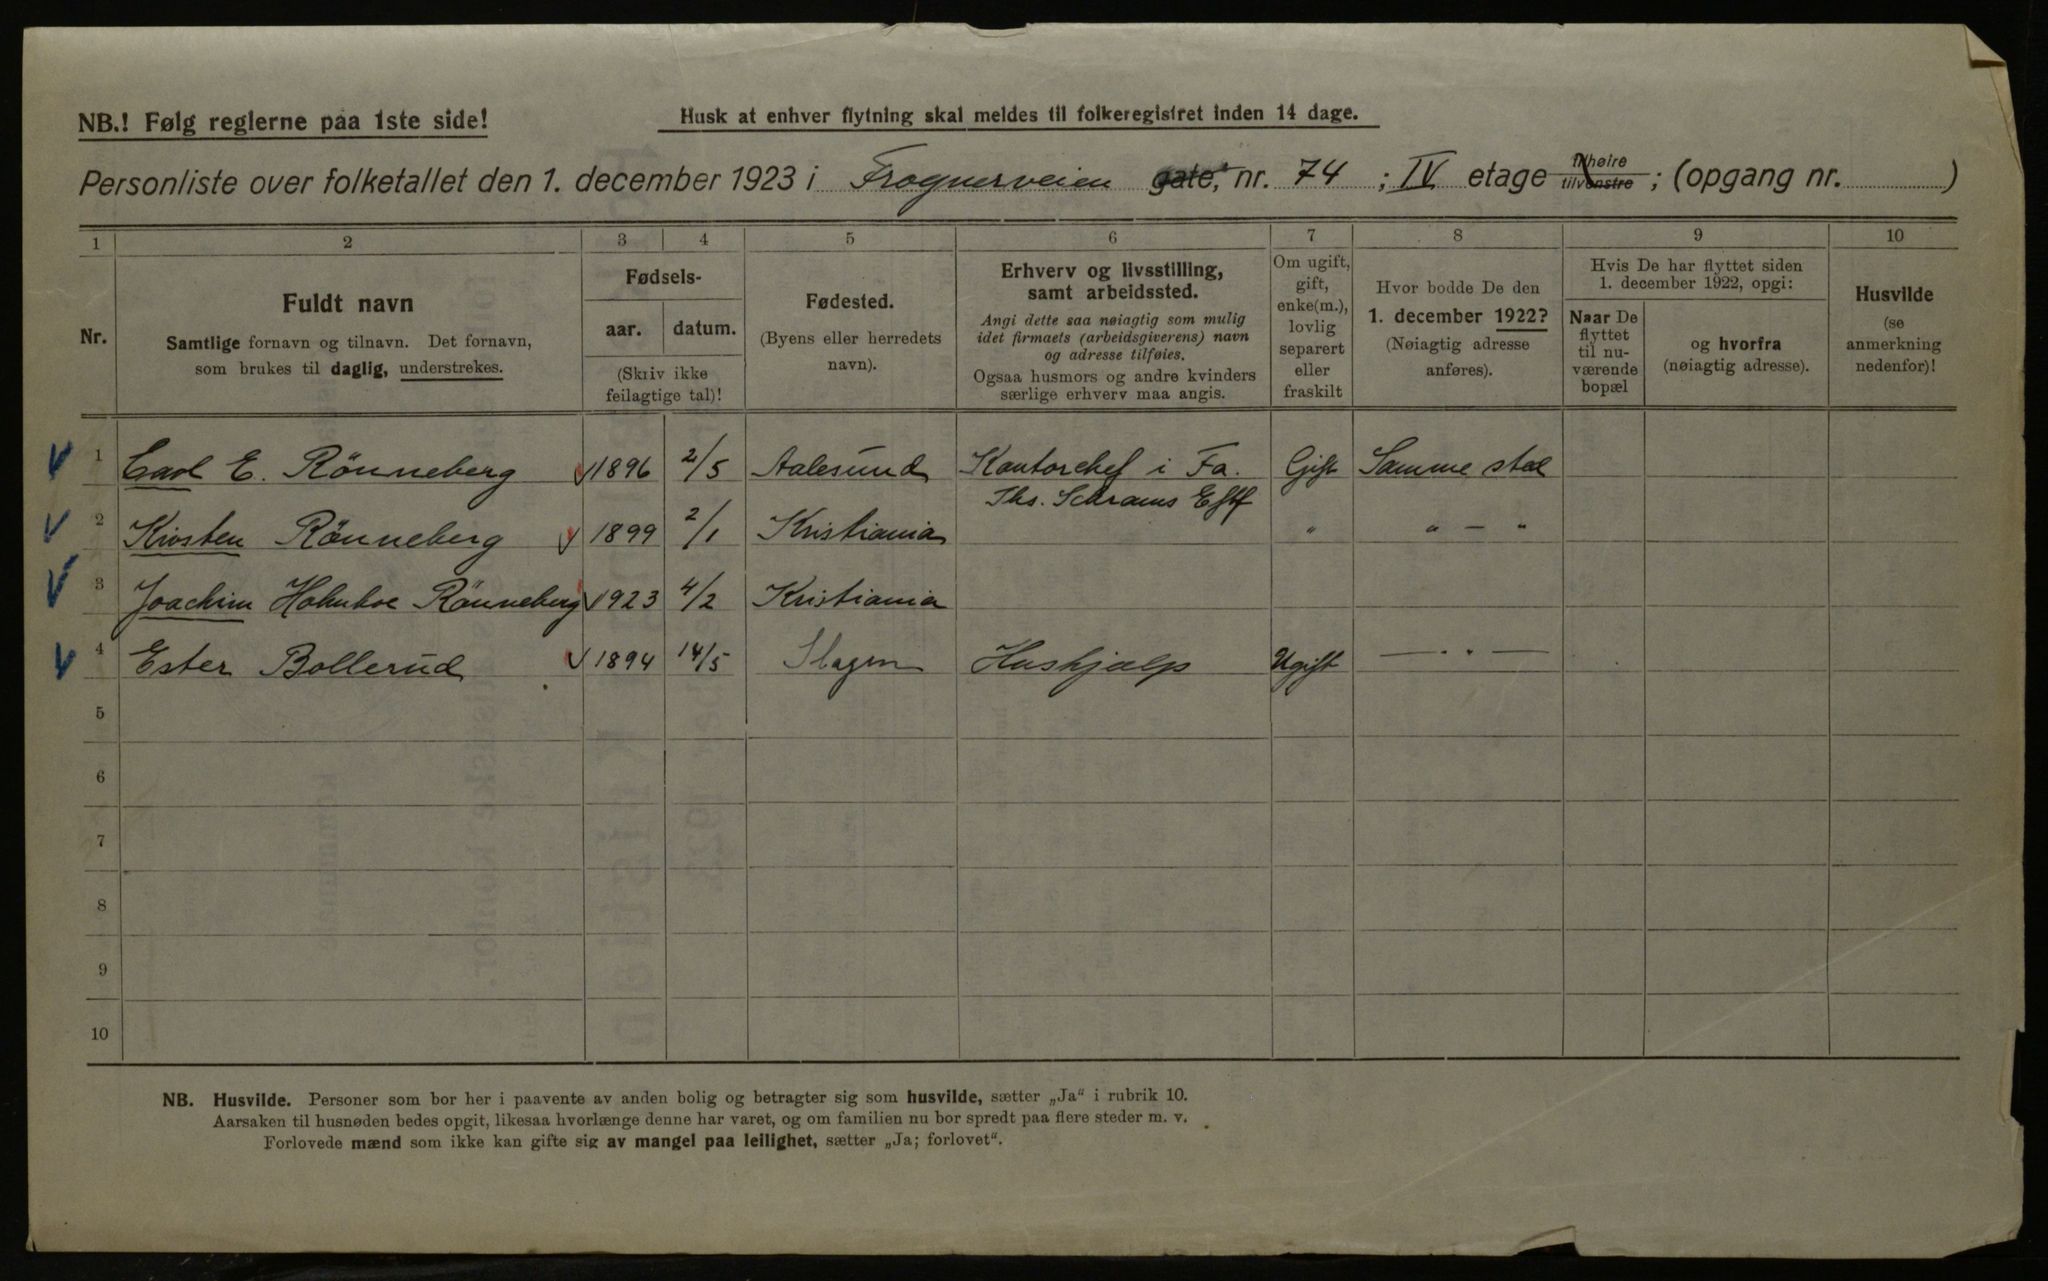 NB.! Følg reglerne paa 1ste side!
Husk at enhver flytning skal meldes til folkeregistret inden 14 dage.
Personliste over folketallet den 1. december 1923 i Frognerveien gate, nr. 74 ; IV etage tilhøire tilvenstre ; (opgang nr. )
1 2 3 4 5 6 7 8 9 10
Nr.
Fuldt navn
Samtlige fornavn og tilnavn. Det fornavn,
som brukes til daglig, understrekes.
Fødsels-
aar. datum.
(Skriv ikke
feilagtige tal)!
Fødested.
(Byens eller herredets
navn).
Erhverv og livsstilling,
samt arbeidssted.
Angi dette saa nøiagtig som mulig
idet firmaets (arbeidsgiverens) navn
og adresse tilføies.
Ogsaa husmors og andre kvinders
særlige erhverv maa angis.
Om ugift,
gift,
enke(m.),
lovlig
separert
eller
fraskilt
Hvor bodde De den
1. december 1922?
(Nøiagtig adresse
anføres).
Hvis De har flyttet siden
1. december 1922, opgi:
Naar De
flyttet
til nu-
værende
bopæl
og hvorfra
(nøiagtig adresse).
Husvilde
(se
anmerkning
nedenfor)!
1 Carl E. Rönneberg 1896 2/5 Aalesund Kontorchef i Fa. Gift Samme sted
Ths. Schrams Eftf
2 Kirsten Rönneberg 1899 2/1 Kristiania " " — "
3 Joachim Holmboe Rönneberg 1923 4/2 Kristiania
4 Ester Bollerud 1894 14/5 Slagen Hushjælp Ugift — " —
5
6
7
8
9
10
NB. Husvilde. Personer som bor her i paavente av anden bolig og betragter sig som husvilde, sætter „Ja“ i rubrik 10.
Aarsaken til husnøden bedes opgit, likesaa hvorlænge denne har varet, og om familien nu bor spredt paa flere steder m. v.
Forlovede mænd som ikke kan gifte sig av mangel paa leilighet, sætter „Ja; forlovet“.